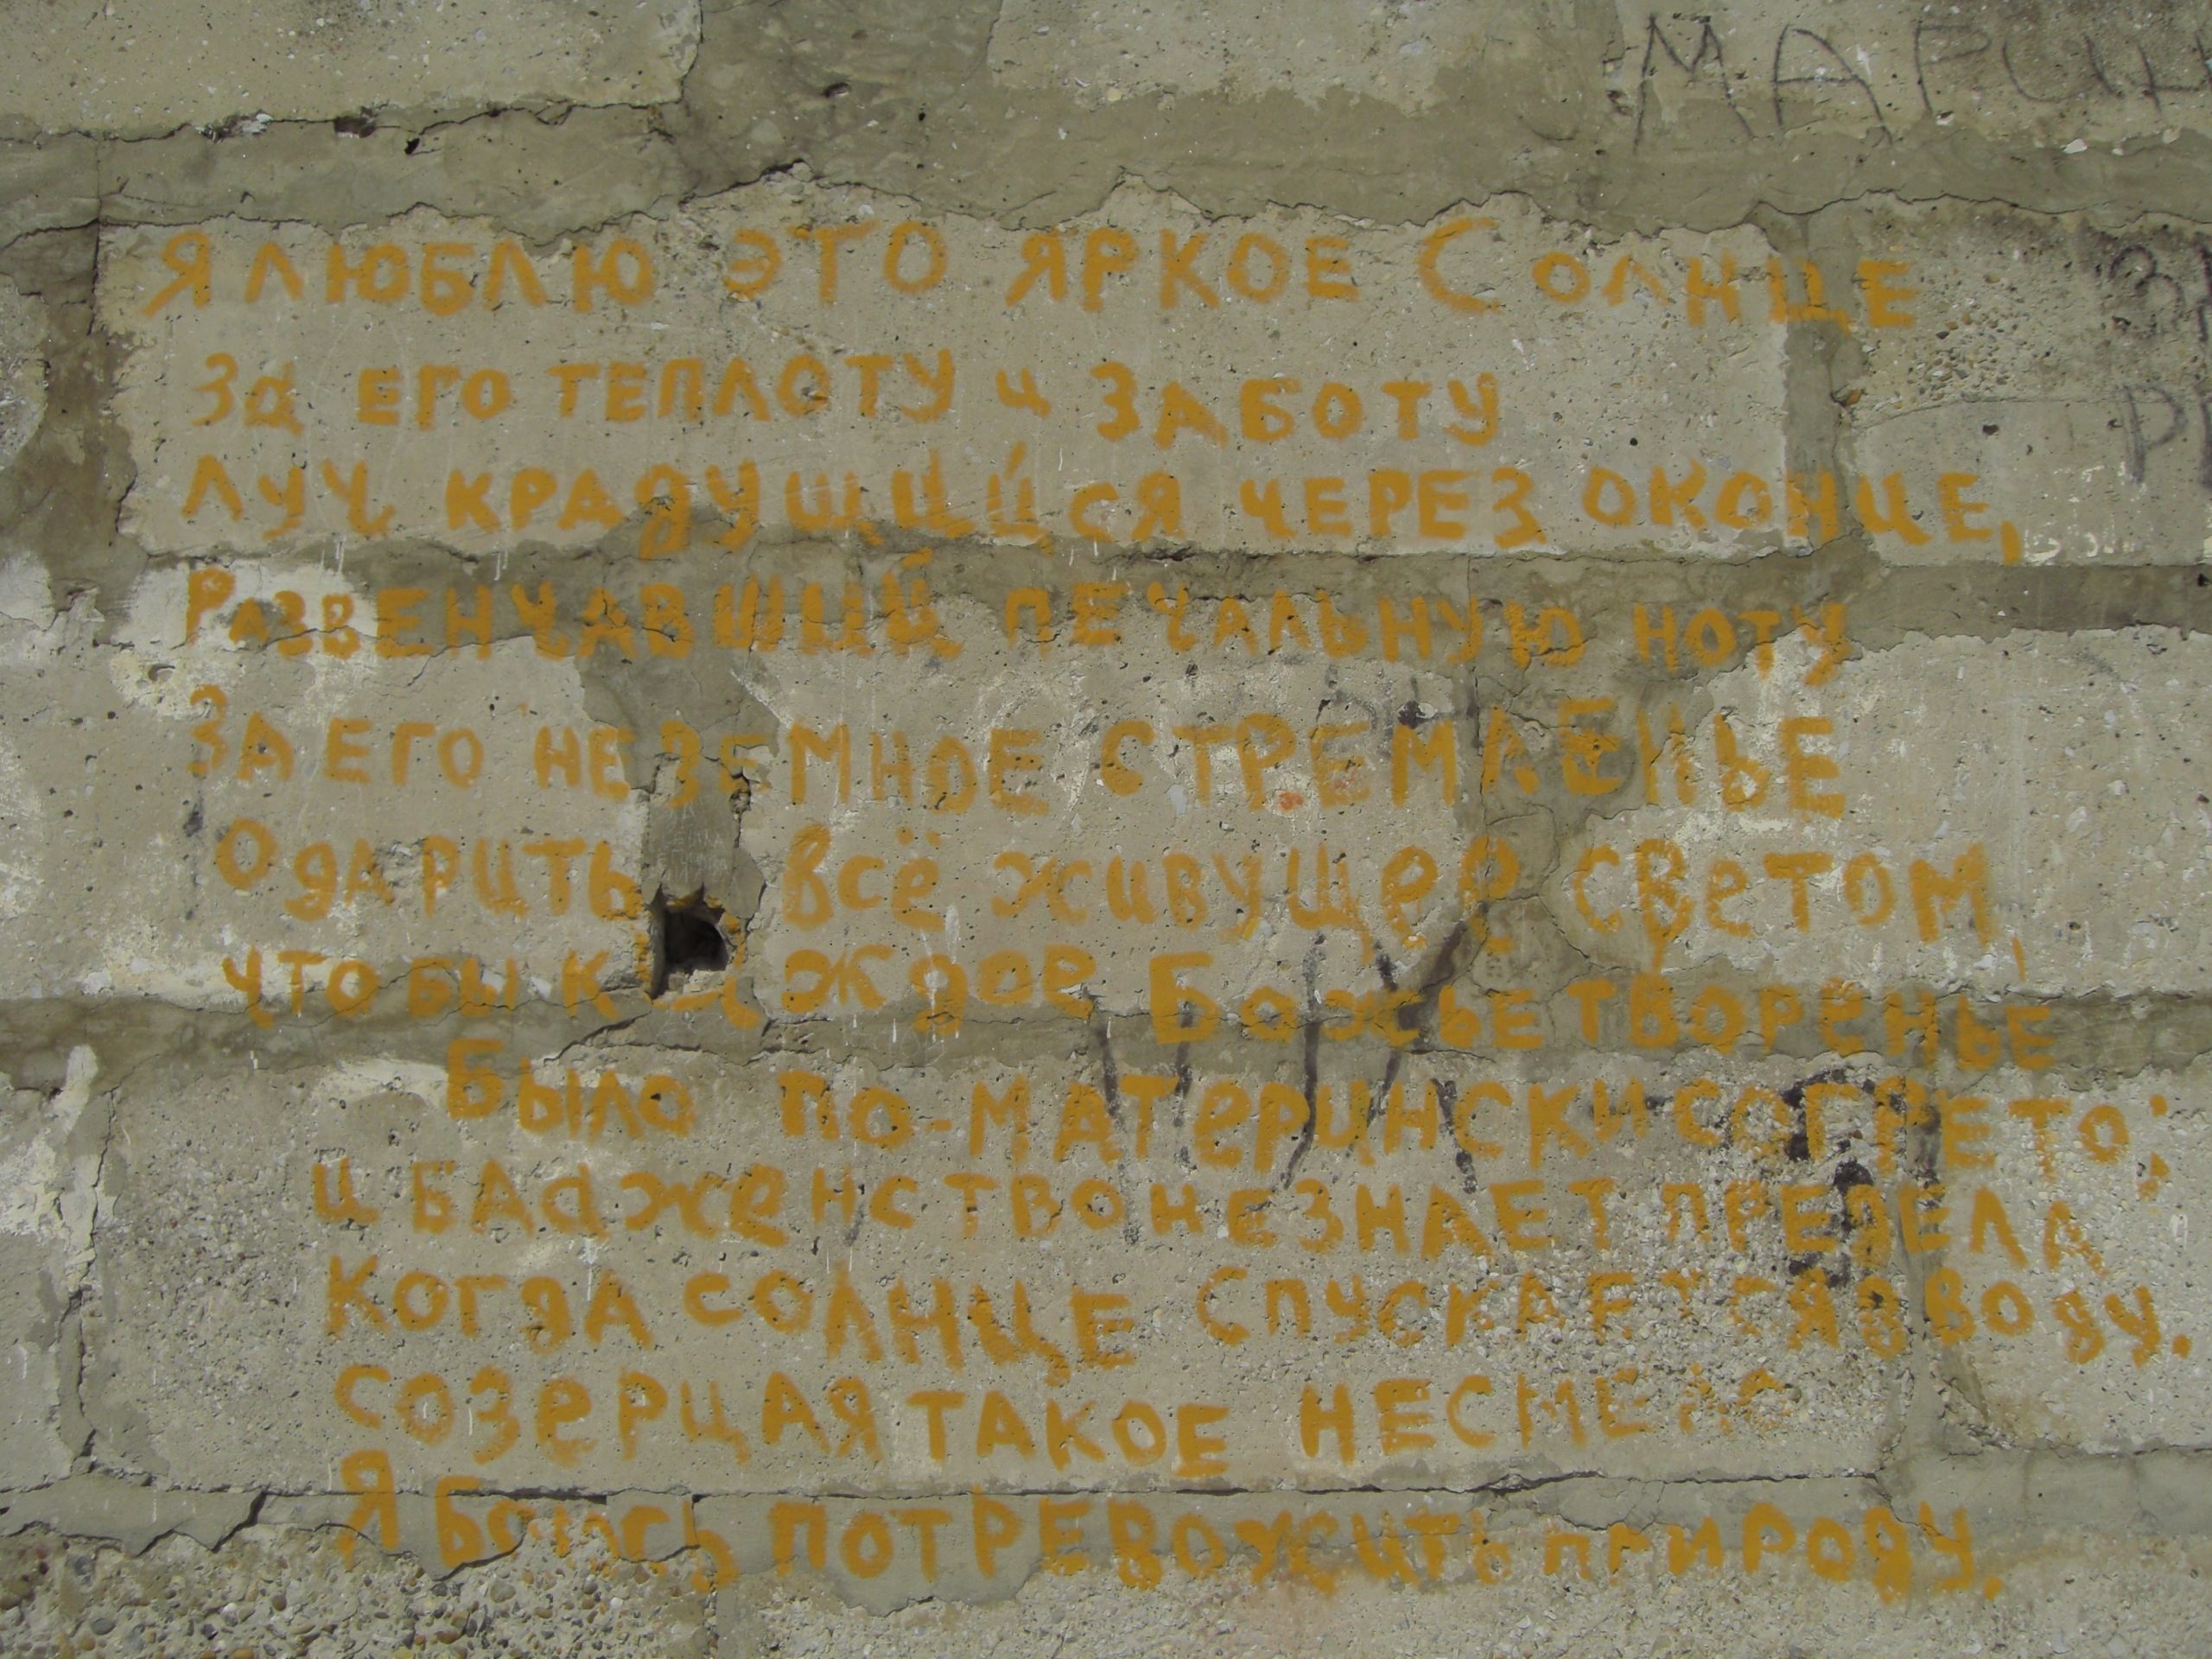 МАРИН
Я ЛЮБЛЮ ЭТО ЯРКОЕ СОЛНЦЕ
За ЕГО ТЕПЛОТУ и ЗАБОТУ
ЛУЧ КРАДУЩИЙСЯ ЧЕРЕЗ ОКОНЦЕ,
РАЗВЕНЧАВШИЙ ПЕЧАЛЬНУЮ НОТУ
ЗА ЕГО НЕЗЕМНОЕ СТРЕМЛЕНЬЕ
ОДАРИТЬ всё живущее светом,
ЧТОБЫ КАЖДОЕ БОЖЬЕ ТВОРЕНЬЕ
Было по-МАТеРИНСКИ СОГРЕТО;
И БЛаженство НЕ ЗНАЕТ ПРЕДЕЛА
КОГДА СОЛНЦЕ СПУСКАЕТСЯ В ВОДУ.
СОЗеРЦАЯ ТАКОЕ НЕСМЕЛО
Я БОЮСЬ ПОТРЕВОЖИТЬ ПРИРОДУ.